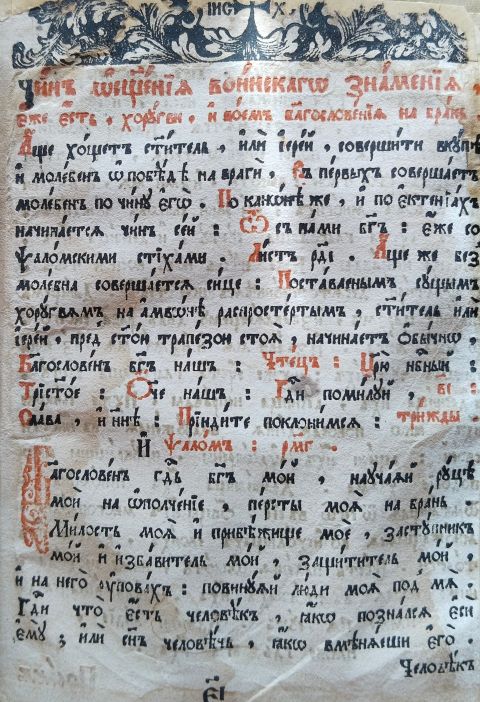 ІИС ХС
Чи́нъ ѡ҆сщ҃е́нїѧ во́инскагѡ зна́менїѧ,
є҆́же є҆́сть, хорꙋ́гви, и҆ во́ємъ бл҃гослове́нїѧ на бра́нь.
А҆́ще хо́щетъ ст҃и́тель, и҆лѝ і҆ере́й, соверши́ти вкꙋ́пѣ
и҆ моле́бенъ ѡ҆ побѣ́дѣ на врагѝ, въ пе́рвыхъ соверша́етъ
моле́бенъ по чи́нꙋ є҆гѡ̀. По канѡ́нѣ же, и҆ по є҆ктенїа́хъ
начина́етсѧ чи́нъ се́й: Съ на́ми бг҃ъ: є҆́же со
ѱало́мскими стїха́ми. Ли́стъ рд҃і. А҆́ще же без̾
моле́бна соверша́етсѧ си́це: Поста́вленымъ сꙋ́щымъ
хорꙋ́гвѧмъ на а҆мвѡ́нѣ распросте́ртымъ, ст҃и́тель и҆лѝ
і҆ере́й, пред̾ ст҃о́ю трапе́зою стоѧ̀, начина́етъ ѡ҆бы́чнѡ,
Бл҃гослове́нъ бг҃ъ на́шъ: Чте́цъ: Цр҃ю̀ нб҃ный:
Трист҃о́е: Ѻ҆́ч҃е на́шъ: Гд҃и поми́лꙋй, в҃і:
Сла́ва, и҆ ны́нѣ: Прїиди́те поклони́мсѧ: три́жды.
И҆ ѱало́мъ: рм҃г.
Бл҃гослове́нъ гд҃ь бг҃ъ мо́й, наꙋча́ѧй рꙋ́цѣ
моѝ на ѡ҆полче́нїе, пе́рсты моѧ̀ на бра́нь.
Ми́лость моѧ̀ и҆ прибѣ́жище моѐ, застꙋ́пникъ
мо́й и҆ и҆зба́витель мо́й, защи́титель мо́й,
и҆ на него̀ ᲂу҆пова́хъ: повинꙋ́ѧй лю́ди моѧ̀ под̾ мѧ̀.
Гд҃и что̀ є҆́сть человѣ́къ, ꙗ҆́кѡ позна́лсѧ є҆сѝ
є҆мꙋ̀; и҆лѝ сы́нъ человѣ́чь, ꙗ҆́кѡ вмѣнѧ́еши є҆го̀.
Человѣ́къ
є҃і